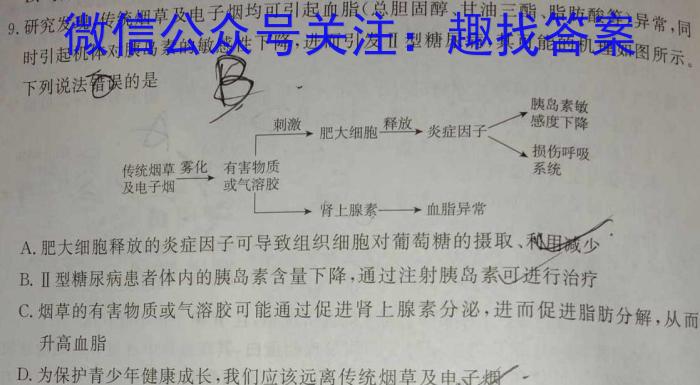 9.研究发现,传统烟草及电子烟均可引起血脂(总胆固醇、甘油三酯、脂肪酸等)异常,同
微信公众号关注：趣找答案
时引起机体对胰岛素的敏感性下降,进而引发Ⅱ型糖尿病,其可能的机理如图所示。
下列说法错误的是
B
传统烟草及电子烟
雾化
有害物质或气溶胶
刺激
肥大细胞
释放
炎症因子
胰岛素敏感度下降
损伤呼吸系统
肾上腺素
血脂异常
A.肥大细胞释放的炎症因子可导致组织细胞对葡萄糖的摄取、利用减少
B.Ⅱ型糖尿病患者体内的胰岛素含量下降,通过注射胰岛素可进行治疗
C.烟草的有害物质或气溶胶可能通过促进肾上腺素分泌,进而促进脂肪分解,从而
升高血脂
D.为保护青少年健康成长,我们应该远离传统烟草及电子烟